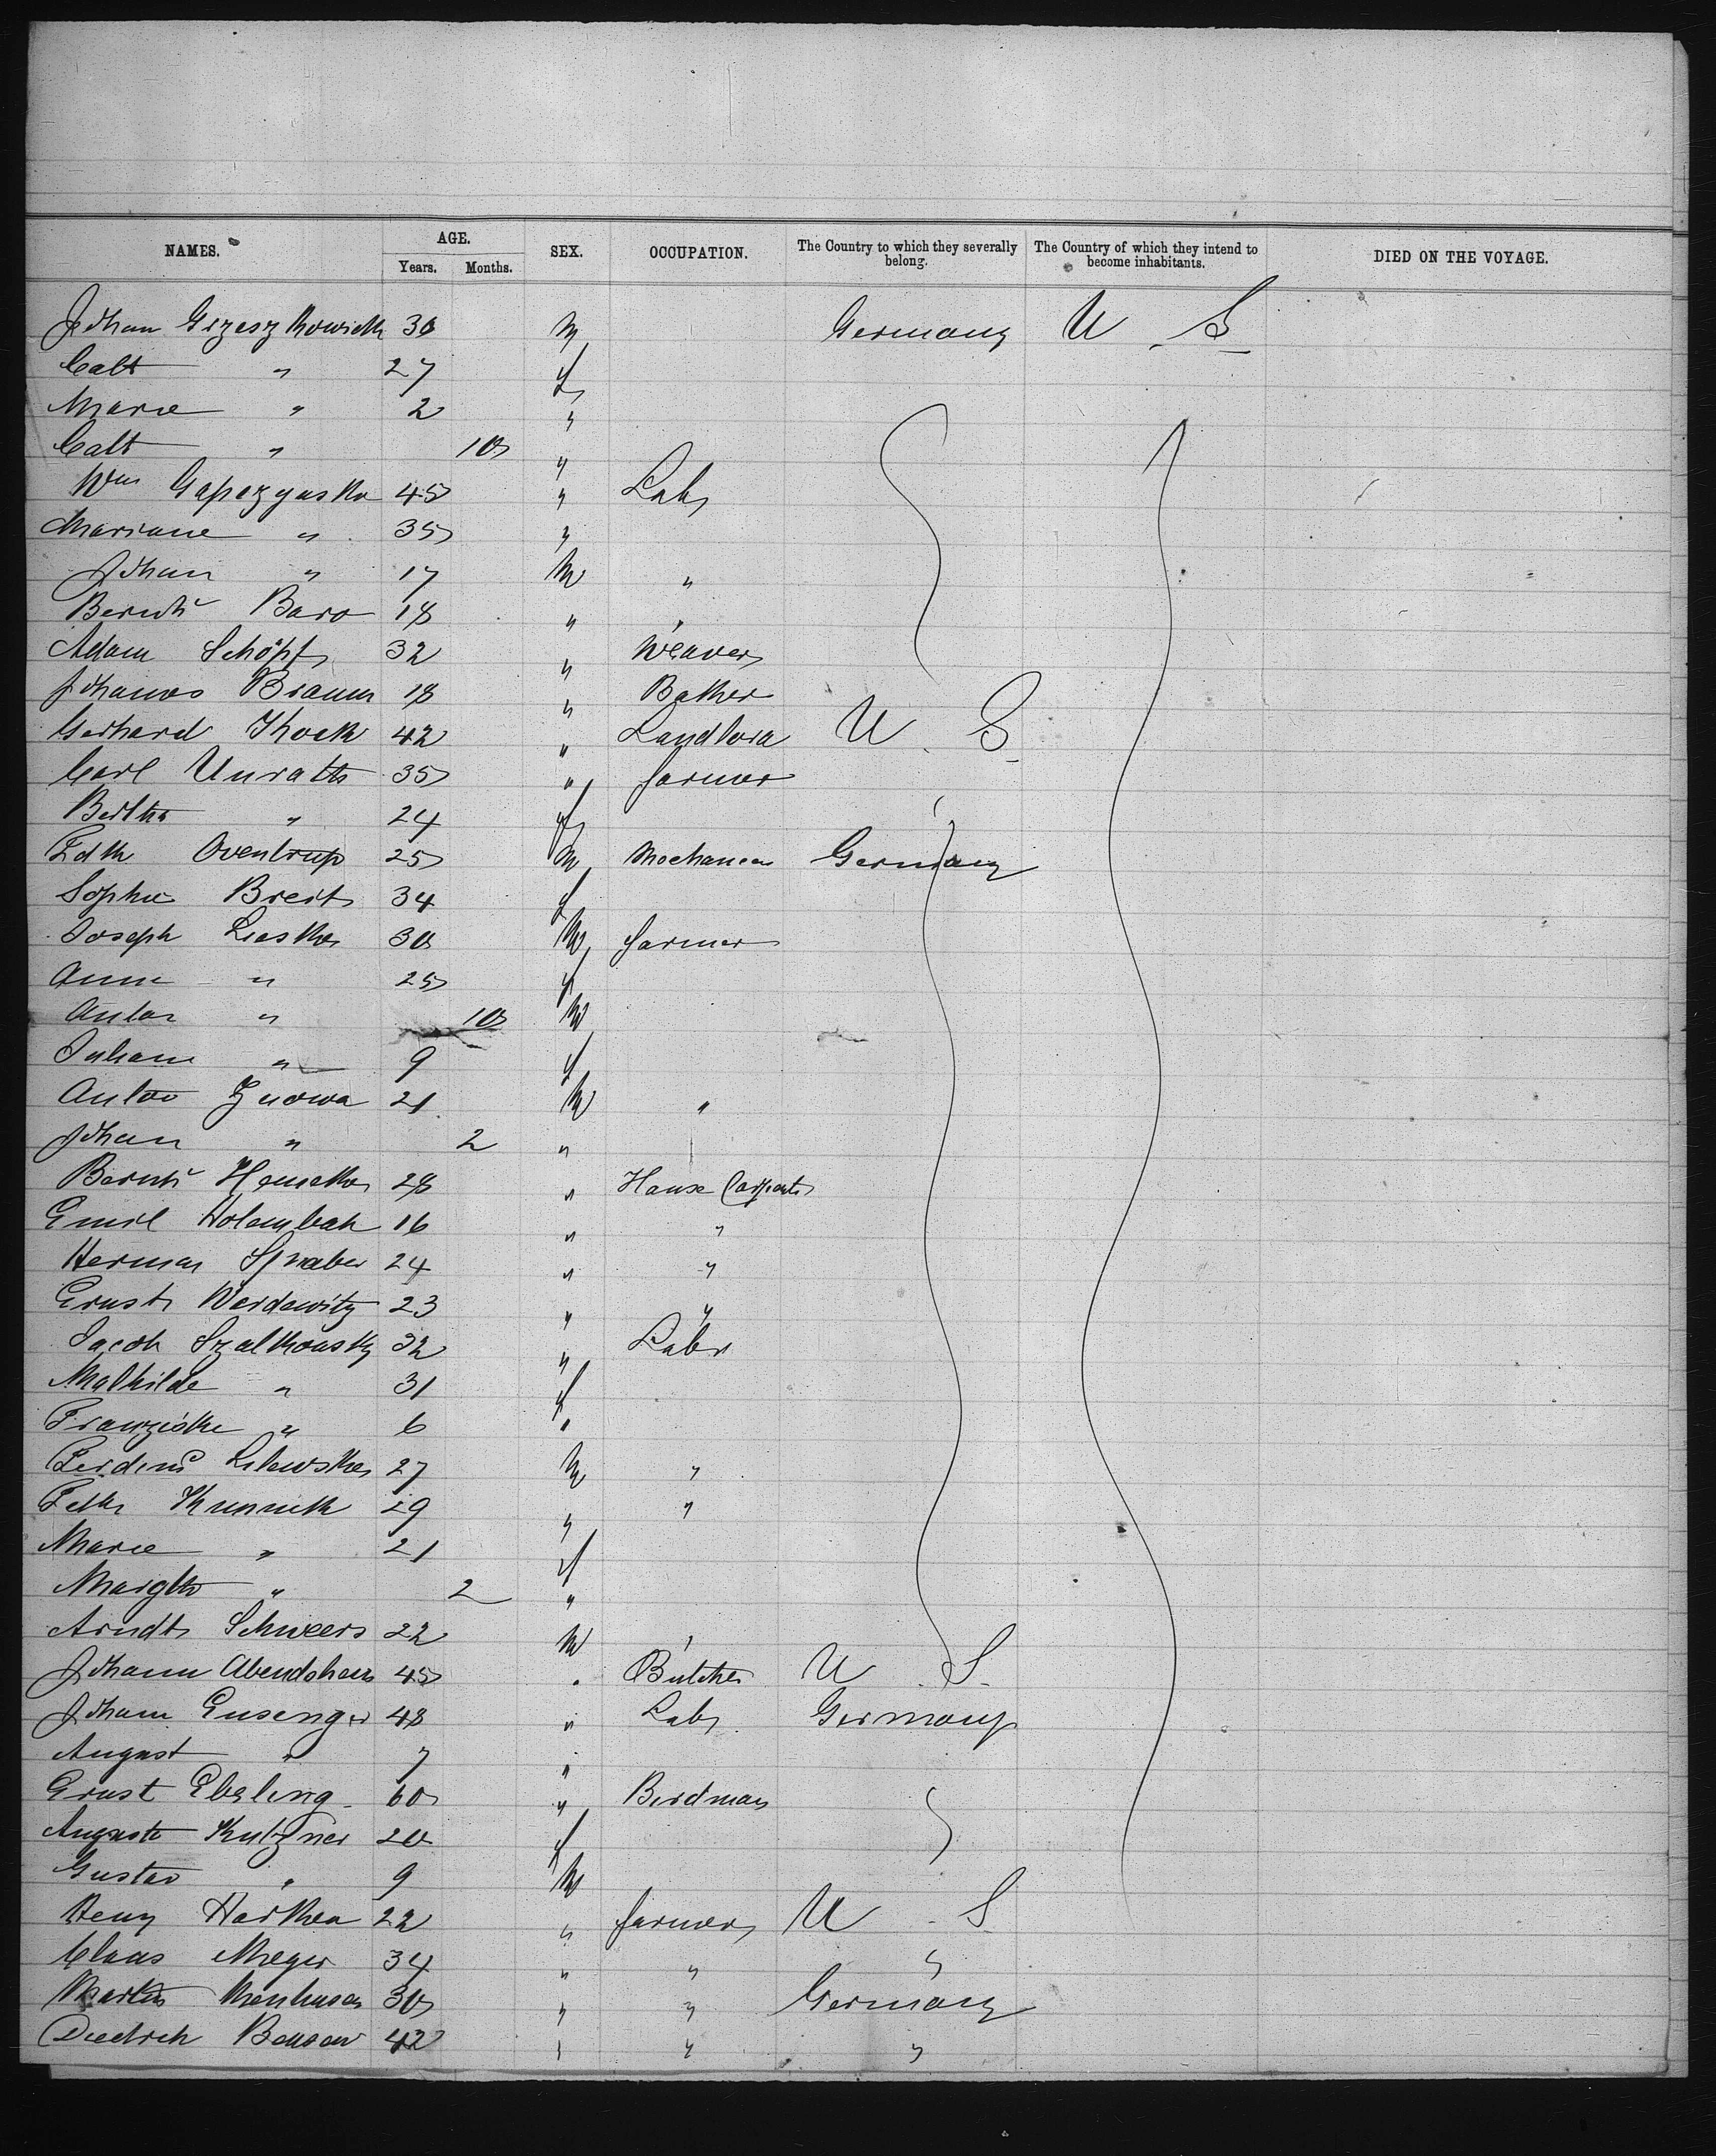 NAMES. AGE. SEX. OCCUPATION. The Country to which they severally belong. The Country of which they intend to become inhabitants. DIED ON THE VOYAGE.
Years. Months.
Johan Grzeszkowick 30 M Germany U S
Cath " 27 f
Marie " 2 "
Cath " 10 "
Wm 45 " Labr
Mariane " 35 "
Johan " 17 M "
Bernh Baro 18 " "
Adam Schöpf 32 " Weaver
Johannes Braum 18 " Baker
Gerhard Kock 42 " Landlord U S
Carl Unrath 35 " farmer "
Bertha " 24 f
Fdk Oventrup 25 M Mechanic Germany
Sophie Breit 34 f
Joseph Lieske 30 M farmer
Anna " 25 f
Anton " 10 M
Juliane " 9 f
Anton Znowa 21 M "
Johan " 2 "
Bernh 28 " House Carpenter
Emil Holembek 16 " "
Herman 24 " "
Ernst Werdewitz 23 " "
Jacob Szalkowsky 32 " Labr
Mathilde " 31 f
Franziska " 6 "
Ferdind Lilewske 27 M "
29 " "
Marie " 21 f
Margth " 2 "
Arndt Schweers 22 M "
Johann Abendshein 45 " Butcher U S
Johann Ensenger 48 " Labr Germany
August " 7 "
Ernst Ebeling 60 " Birdman
Auguste Kutzner 20 f
Gustav " 9 M
Heny Harken 22 " farmer U S
Claas Meyer 34 " " "
Martin Menhusen 30 " " Germany
Diedrich Bensen 42 " " "